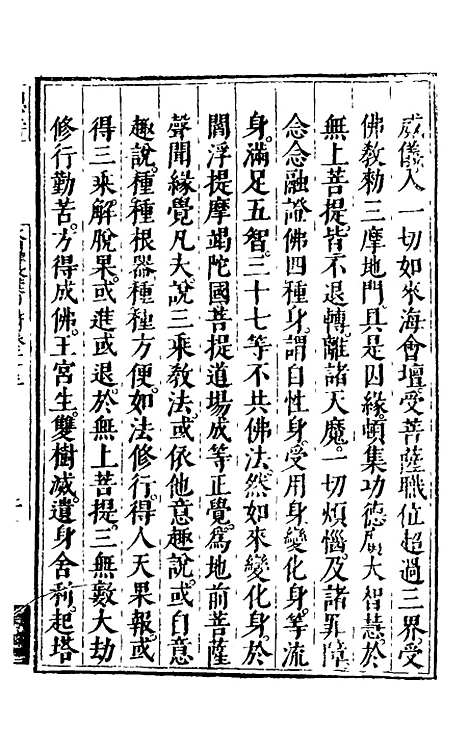 威儀入一切如來海會壇受菩薩職位超過三界受
佛敎勅三摩地門具是因緣頓集功德廣大智慧於
無上菩提皆不退轉離諸天魔一切煩惱及諸罪障
念念融證佛四種身謂自性身受用身變化身等流
身滿足五智三十七等不共佛法然如來變化身於
閻浮提摩竭陀國菩提道場成等正覺爲地前菩薩
聲聞緣覺凡夫說三乘敎法或依他意趣說或自意
趣說種種根器種種方便如法修行得人天果報或
得三乘解脫果或進或退於無上菩提三無數大劫
修行勤苦方得成佛王宮生雙樹滅遺身舍利起塔